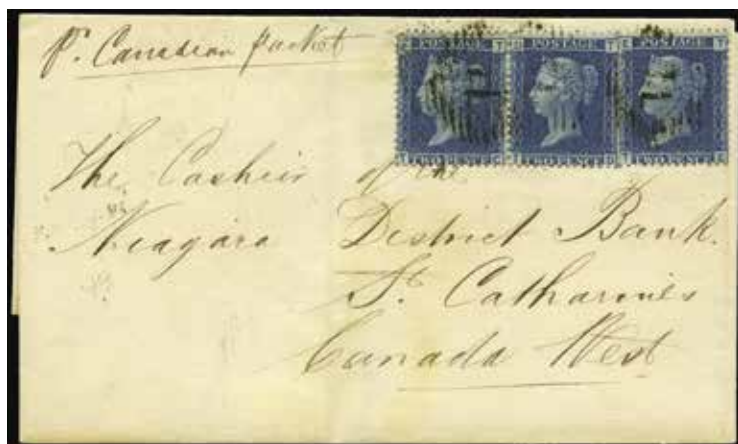 pr. Canadian Packet
POSTAGE POSTAGE POSTAGE
TWO PENCE TWO PENCE TWO PENCE
The Cashier of the
Niagara District Bank.
St. Catharines
Canada West